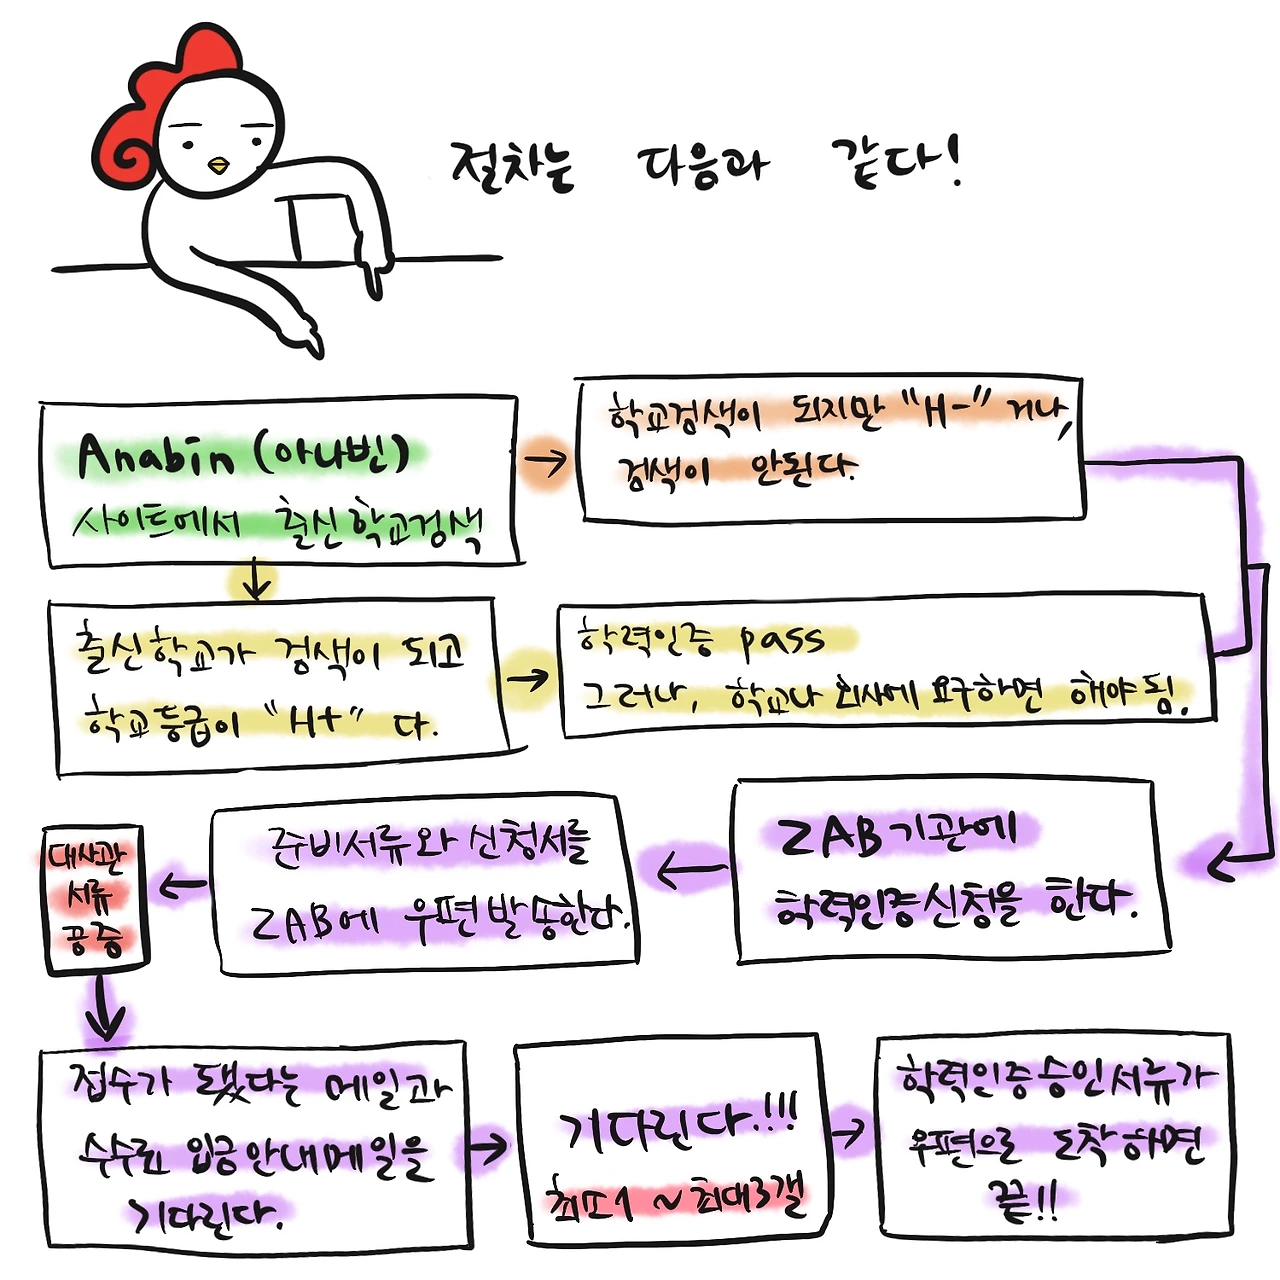 절차는 다음과 같다!
Anabin (아나빈)
사이트에서 출신학교검색
학교검색이 되지만 "H-" 거나,
검색이 안된다.
출신학교가 검색이 되고
학교등급이 "H+" 다.
학력인증 pass
그러나, 학교나 회사에 요구하면 해야 됨.
ZAB기관에
학력인증신청을 한다.
준비서류와 신청서를
ZAB에 우편발송한다.
대사관
서류
공증
접수가 됐다는 메일과
수수료 입금안내메일을
기다린다.
기다린다.!!!
최소1 ~ 최대3갤
학력인증승인서류가
우편으로 도착하면
끝!!